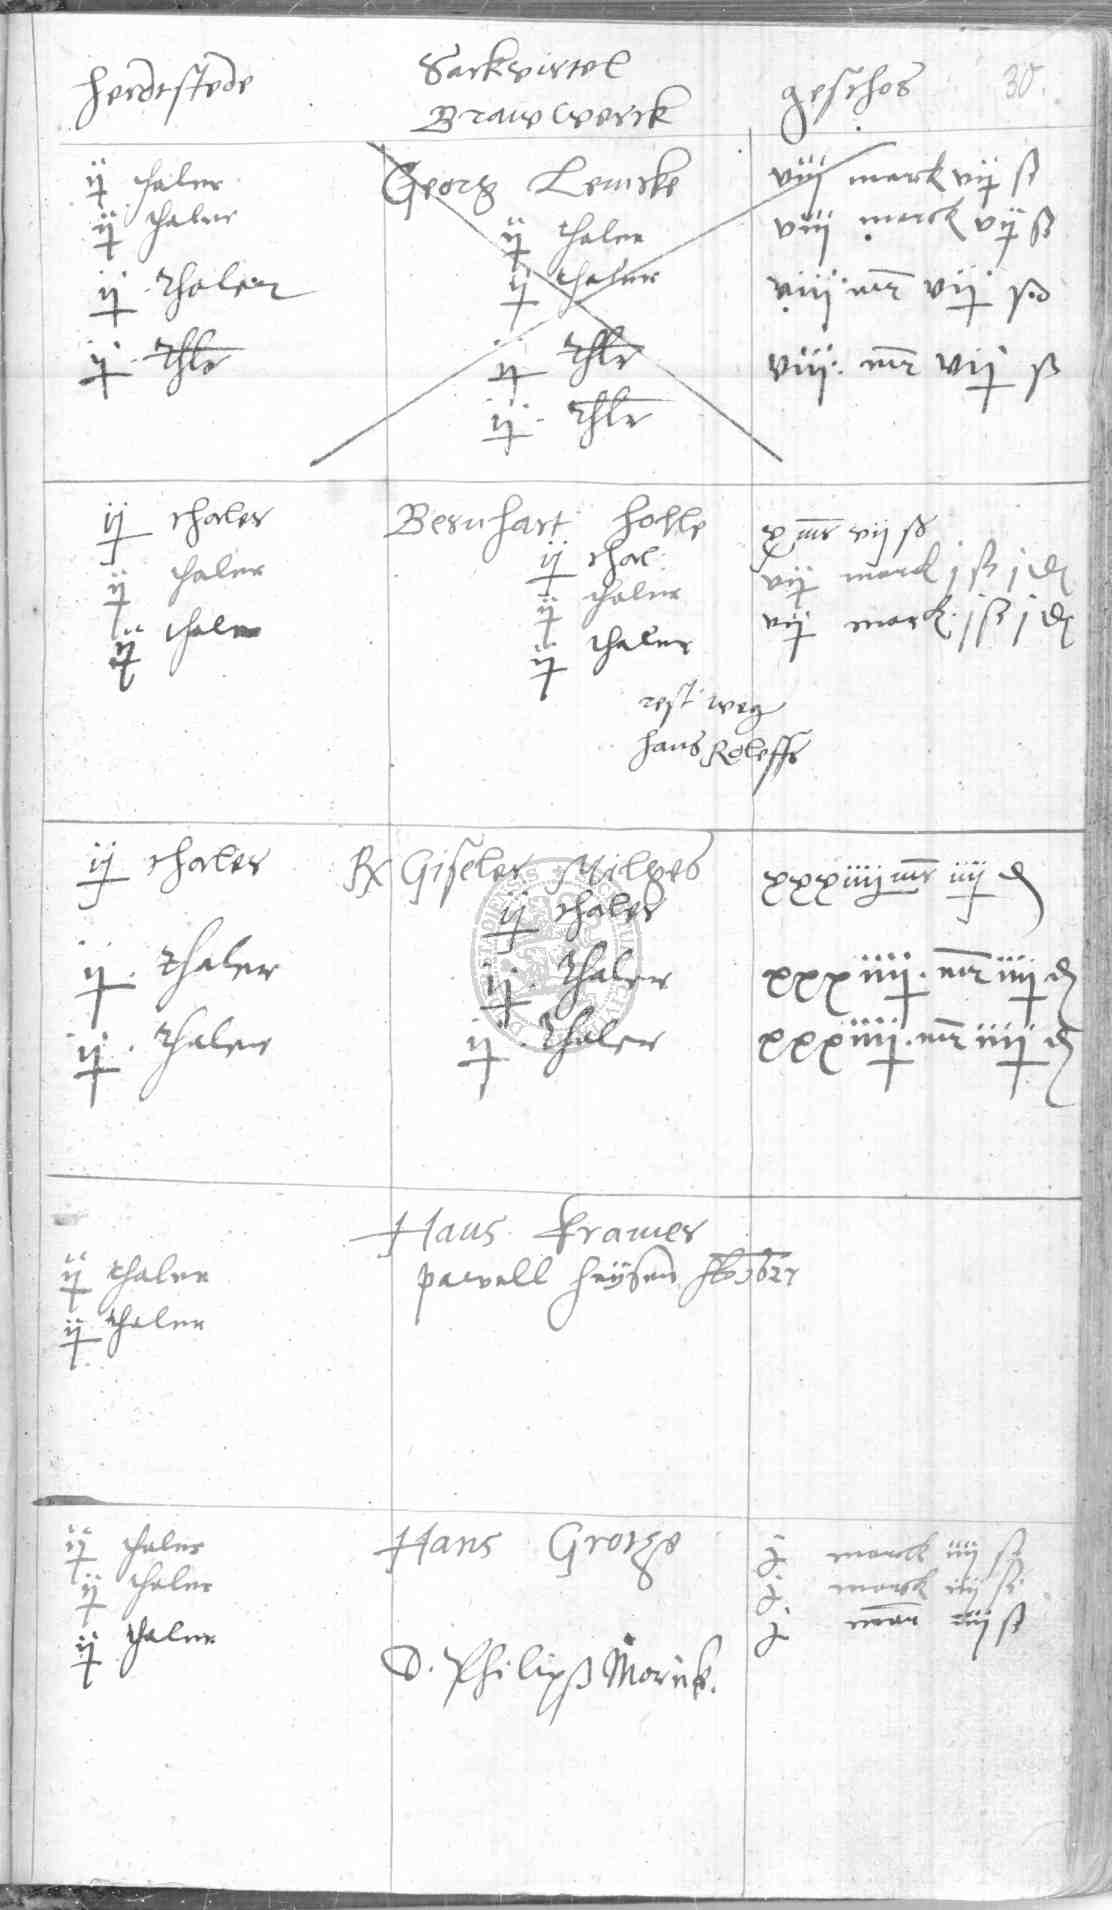 herdtstede
Sackvirtel
Brawwerck
geschos
30.
ij thaler
ij thaler
ij thaler
ij thlr
Georg Lemcke
ij thaler
ij thaler
ij thlr
ij thlr
viij marck vij ß
viij marck vij ß
viij mr vij ß
viij mr vij ß
ij thaler
ij thaler
ij thaler
Bernhart Holle
ij thal
ij thaler
ij thaler
rest weg
hans Roleffs
x mr vij ß
vij marck j ß j d
vij marck j ß j d
ij thaler
ij thaler
ij thaler
Rx Giseler Milges
ij thaler
ij thaler
ij thaler
xxxiiij mr iiij d
xxxiiij mr iiij d
xxxiiij mr iiij d
ij thaler
ij thaler
Hans Kramer
pawell 1627
ij thaler
ij thaler
ij thaler
Hans Grotge
D. Philipß
j marck iiij ß
j marck iiij ß
j mar iiij ß